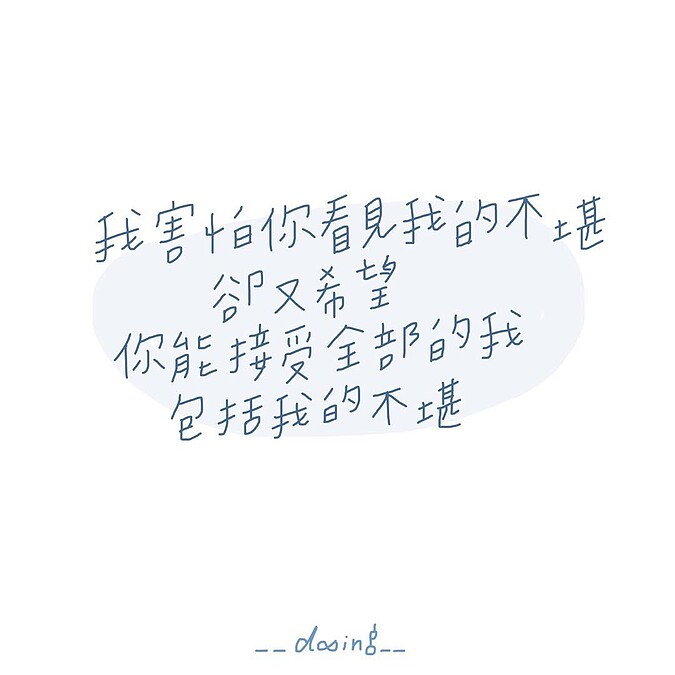 我害怕你看見我的不堪
卻又希望
你能接受全部的我
包括我的不堪
__dosing__